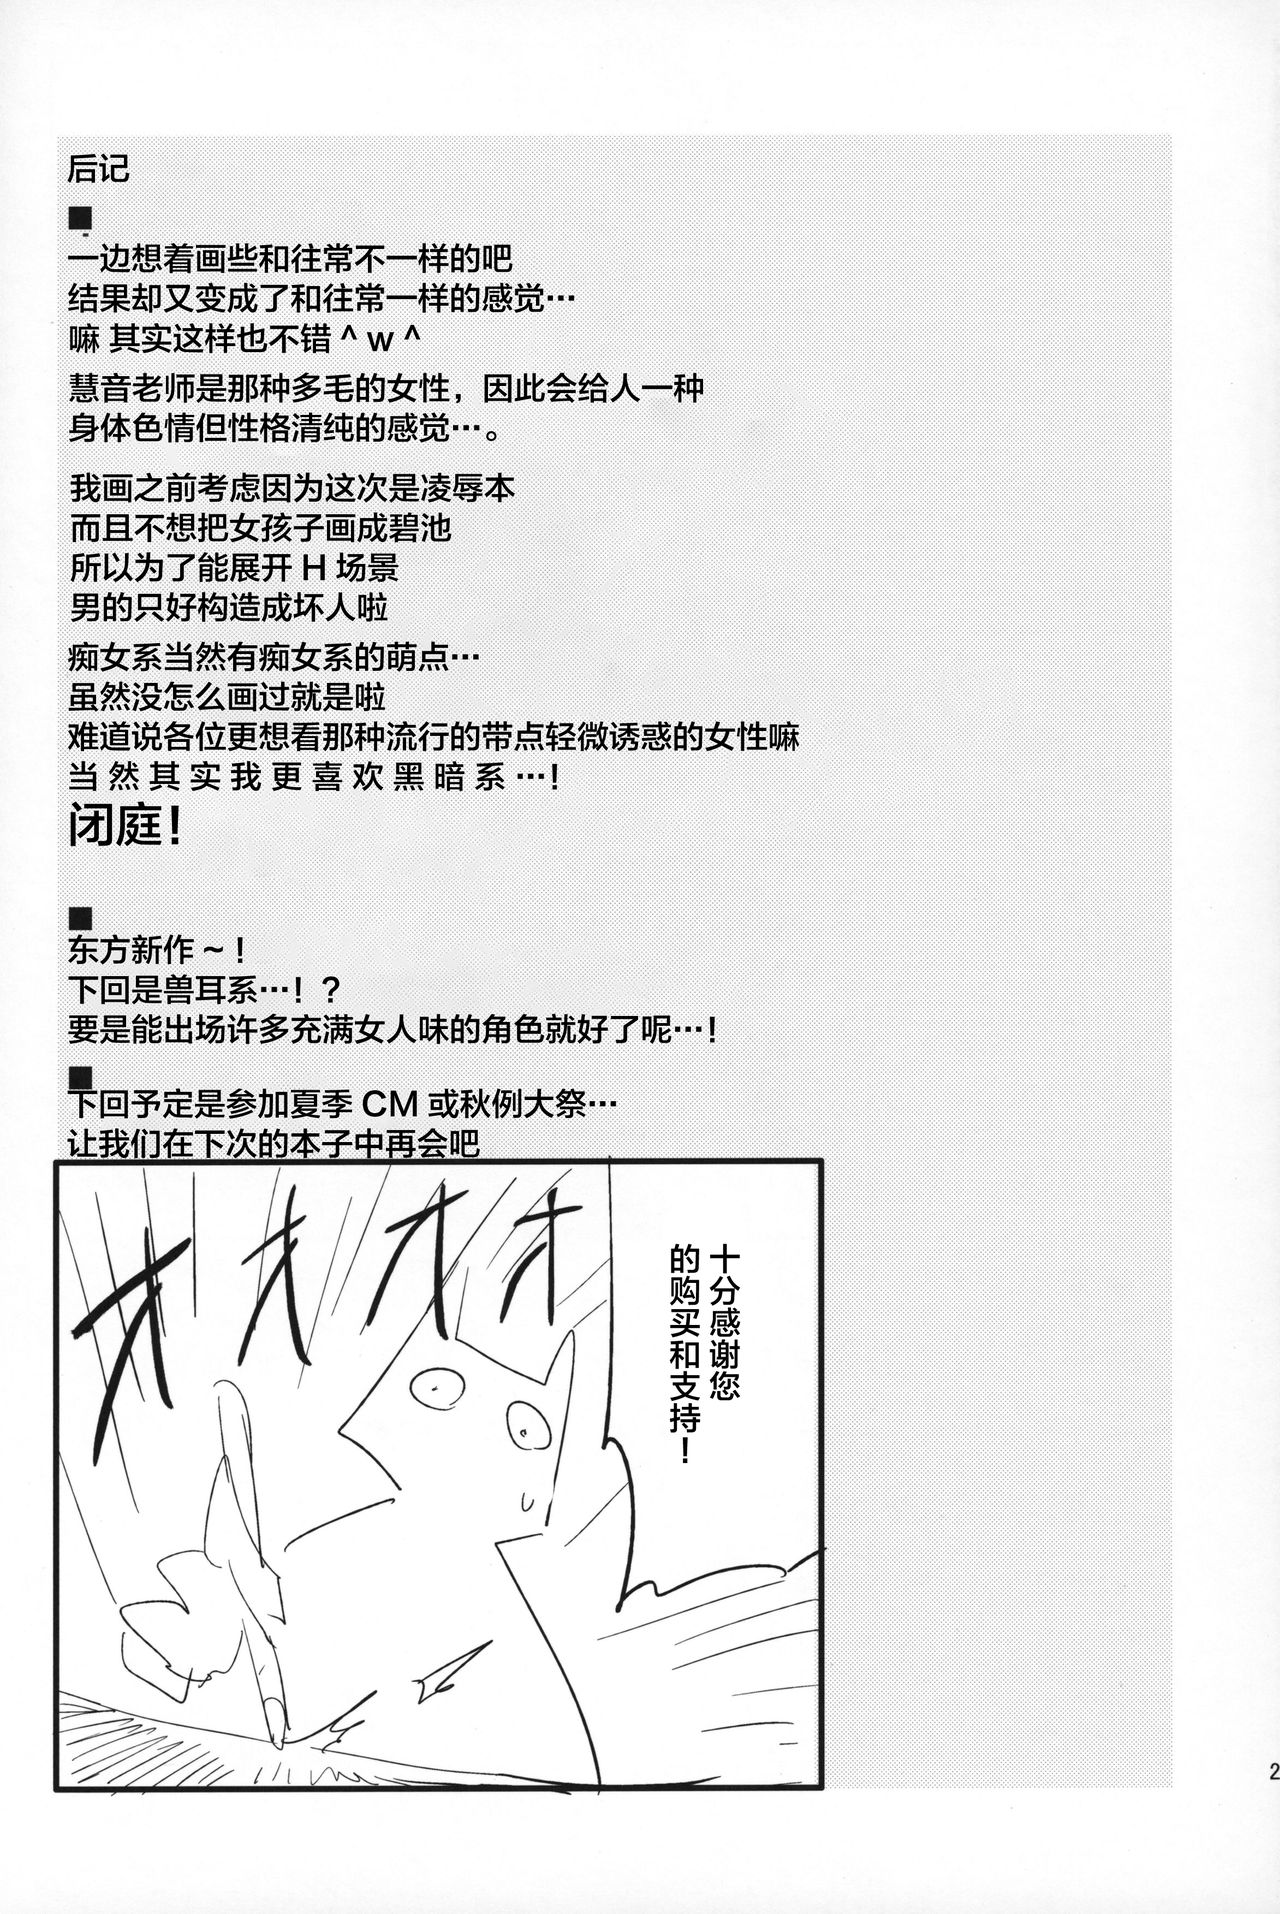 后记
■
一边想着画些和往常不一样的吧
结果却又变成了和往常一样的感觉…
嘛 其实这样也不错 ^ w ^
慧音老师是那种多毛的女性，因此会给人一种
身体色情但性格清纯的感觉…。
我画之前考虑因为这次是凌辱本
而且不想把女孩子画成碧池
所以为了能展开 H 场景
男的只好构造成坏人啦
痴女系当然有痴女系的萌点…
虽然没怎么画过就是啦
难道说各位更想看那种流行的带点轻微诱惑的女性嘛
当然其实我更喜欢黑暗系…！
闭庭！
■
东方新作～！
下回是兽耳系…！？
要是能出场许多充满女人味的角色就好了呢…！
■
下回予定是参加夏季 CM 或秋例大祭…
让我们在下次的本子中再会吧
十分感谢您
的购买和支持！
オオオオ
2